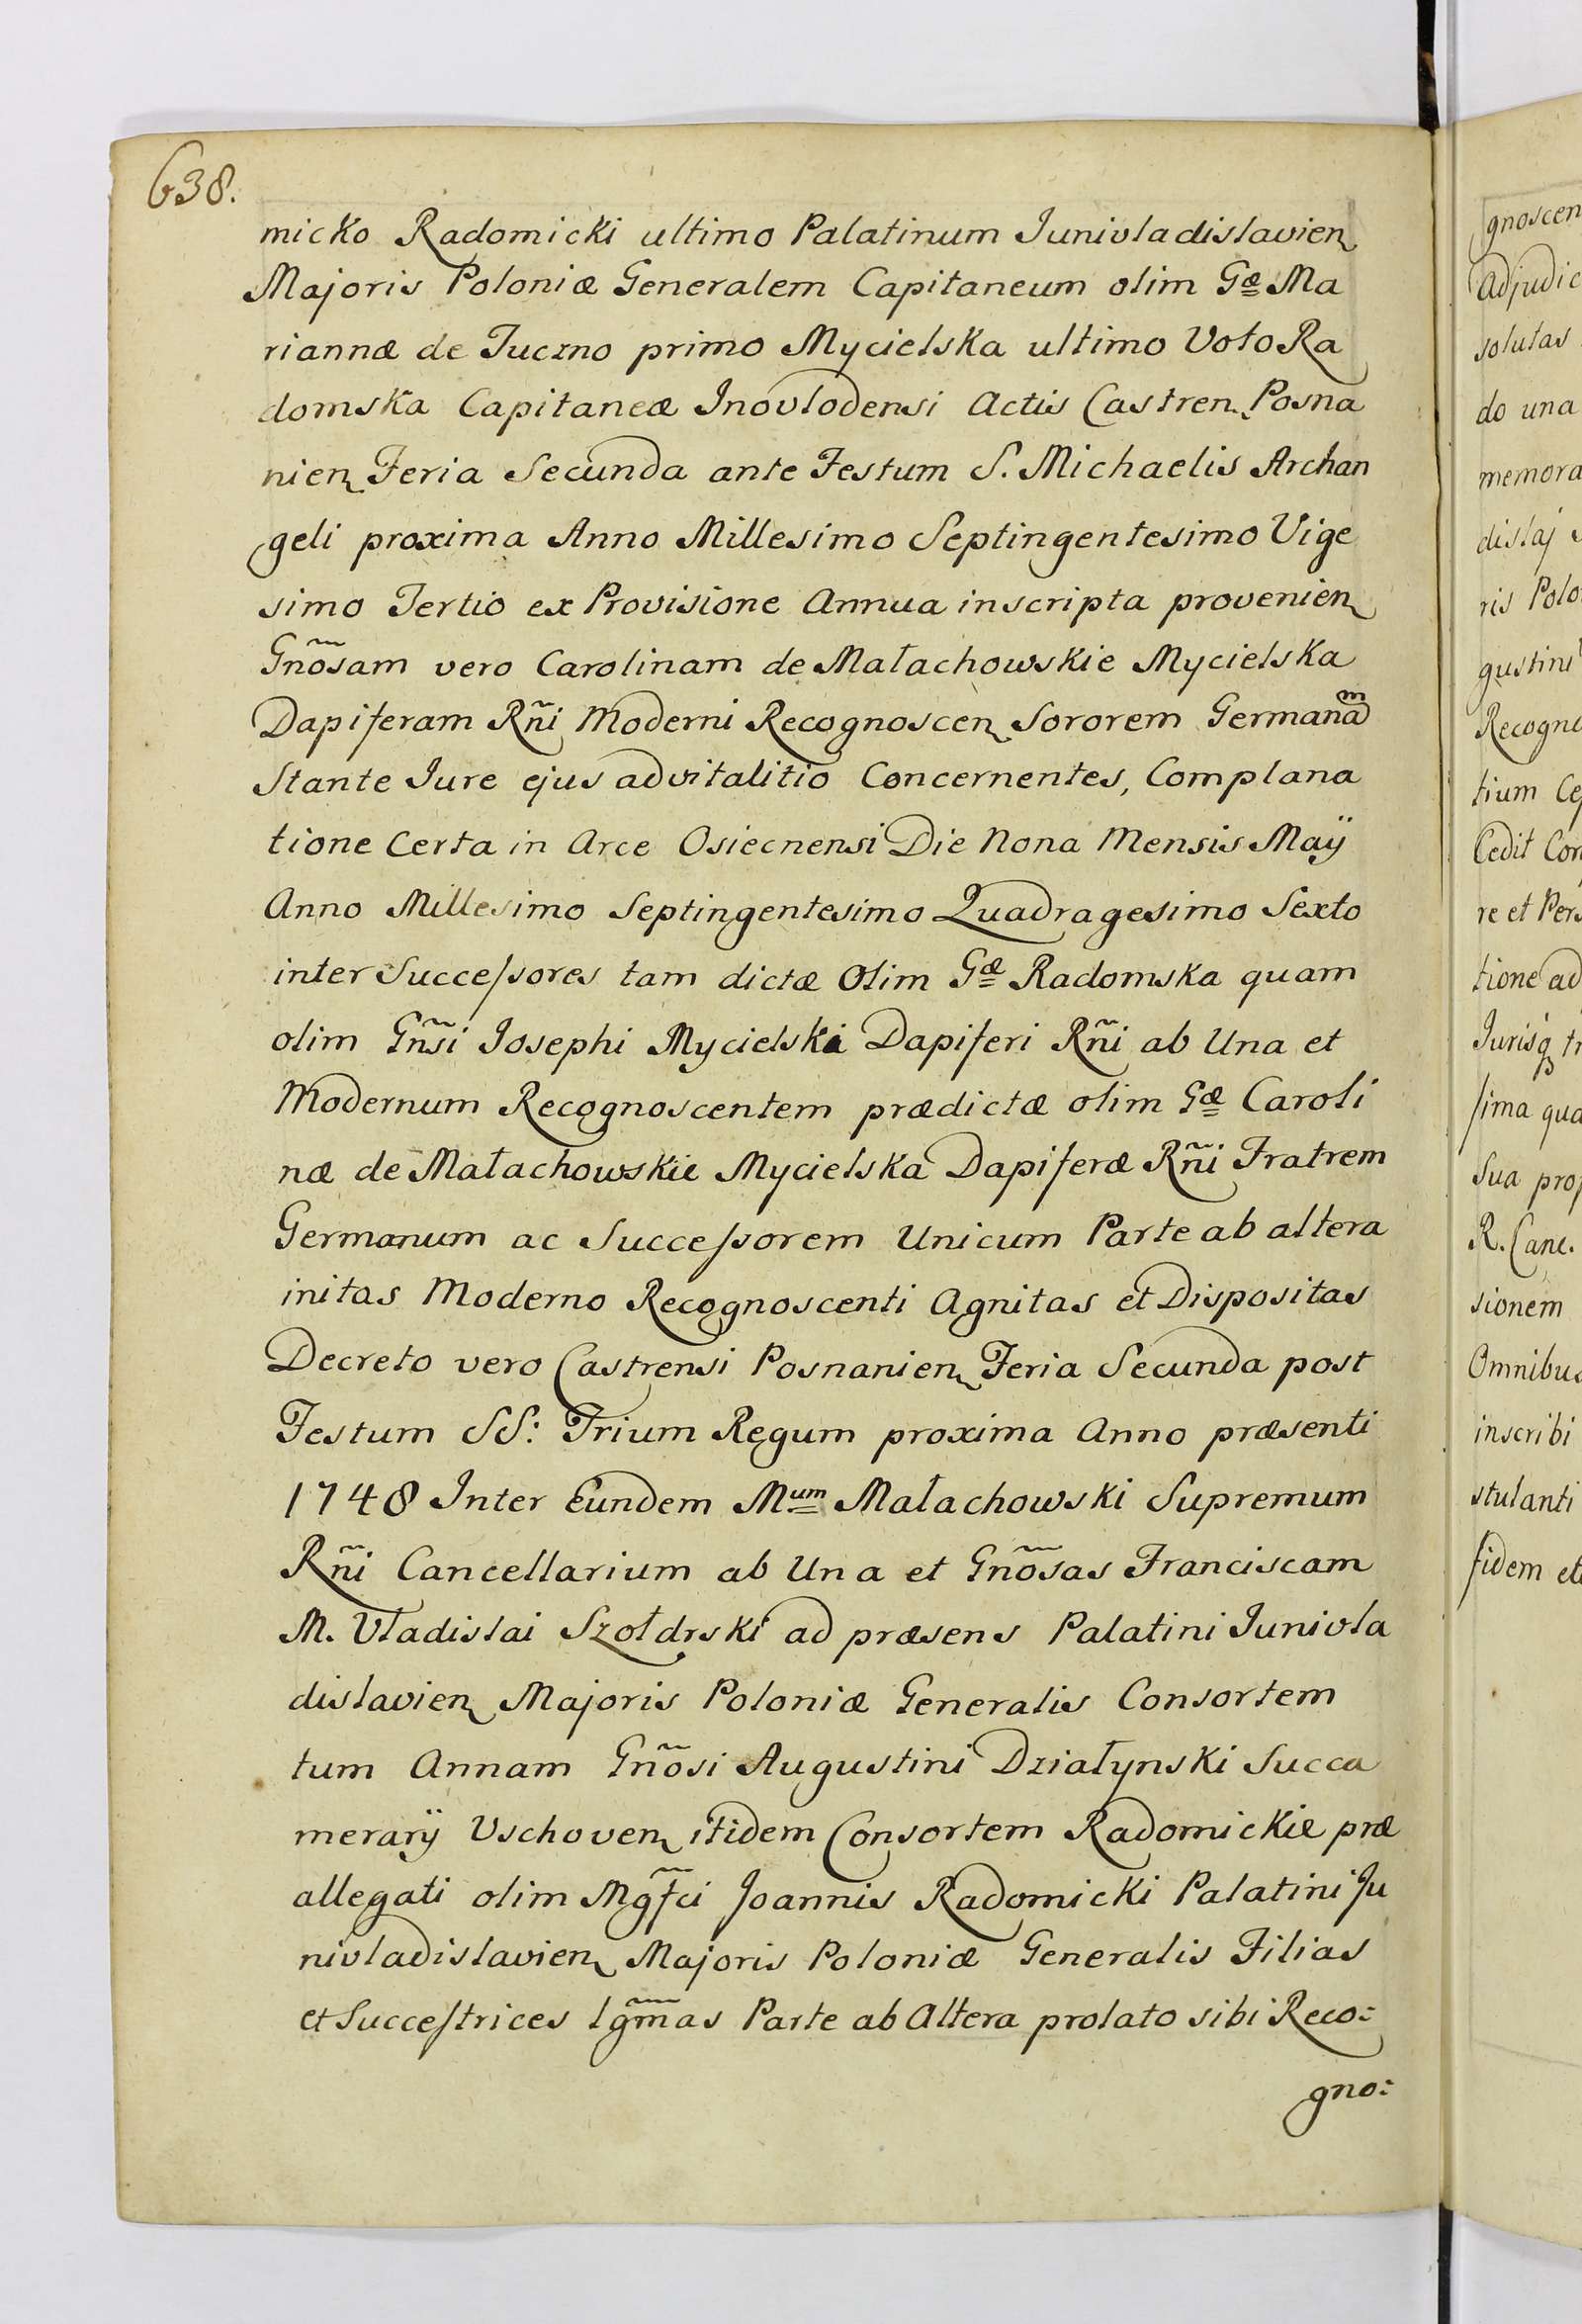 638.
micko Radomicki ultimo Palatinum Junivladislavien
Majoris Poloniæ Generalem Capitaneum olim Gæ Ma
riannæ de Tuczno primo Mycielska ultimo Voto Ra
domska Capitaneæ Inovlodensi Actis Castren Posna
nien Feria Secunda ante Festum S. Michaelis Archan
geli proxima Anno Millesimo Septingentesimo Vige
simo Tertio ex Provisione Annua inscripta provenien
Gnõsam vero Carolinam de Małachowskie Mycielska
Dapiferam Rñi Moderni Recognoscen Sororem Germanãm
Stante Jure ejus advitalitio Concernentes, Complana
tione Certa in Arce Osiecnensi Die Nona Mensis Maÿ
Anno Millesimo Septingentesimo Quadragesimo Sexto
inter Succeſsores tam dictæ Olim Gæ Radomska quam
olim Gñsi Josephi Mycielski Dapiferi Rñi ab Una et
Modernum Recognoscentem prædictæ olim Gæ Caroli
næ de Małachowskie Mycielska Dapiferæ Rñi Fratrem
Germanum ac Succeſsorem Unicum Parte ab altera
initas Moderno Recognoscenti Agnitas et Dispositas
Decreto vero Castrensi Posnanien Feria Secunda post
Festum SS: Trium Regum proxima Anno præsenti
1748 Inter Eundem Mum Małachowski Supremum
Rñi Cancellarium ab Una et Gnõsas Franciscam
M. Vladislai Szołdrski ad præsens Palatini Junivla
dislavien Majoris Poloniæ Generalis Consortem
tum Annam Gnõsi Augustini Działynski Succa
merarÿ Vschoven itidem Consortem Radomickie præ
allegati olim Mgf̃ci Joannis Radomicki Palatini Ju
nivladislavien Majoris Poloniæ Generalis Filias
et Succeſtrices lgm̃as Parte ab Altera prolato sibi Reco:
gno:
gnoscen
Adjudic
solutas
do una
memora
dislaj
ris Polo
gustini
Recogno
tium Ce
Cedit Con
re et Pers
tione ad
Jurisq tr
ſima qua
Sua prop
R. Canc.
sionem
Omnibus
inscribi
stulanti
fidem et